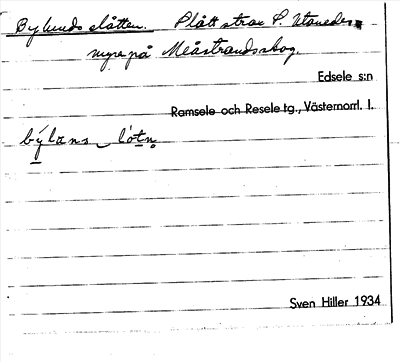 Bylundsslåtten. Slått strax S. Utanedes-
myre på Meåstrandsskog.
Edsele s:n
Ramsele och Resele tg., Västernorrl. l.
býlans_lòtn
Sven Hiller 1934